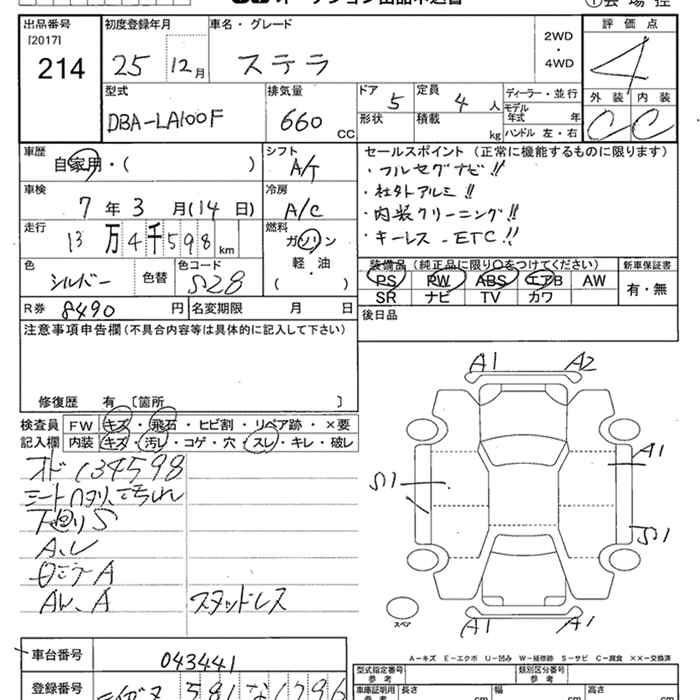 オークション出品申込書
①会場控
出品番号 [2017] 214
初度登録年月 25年 12月
車名・グレード ステラ
2WD・4WD
評価点 4
型式 DBA-LA100F
排気量 660 CC
ドア 5
形状
定員 4 人
積載 kg
ディーラー・並行
モデル年式 年
ハンドル 左・右
外装 C
内装 C
車歴 自家用・( )
シフト A/T
セールスポイント (正常に機能するものに限ります)
・フルセグナビ!!
・社外アルミ!!
・内装クリーニング!!
・キーレス - ETC!!
車検 7年3月(14日)
冷房 A/C
走行 13万4千598km
燃料 ガソリン 軽・油 ( )
色 シルバー 色替
色コード S28
装備品(純正品に限り○をつけてください)
PS PW ABS エアB AW
SR ナビ TV カワ
新車保証書 有・無
R券 8490円
名変期限 月 日
後日品
注意事項申告欄(不具合内容等は具体的に記入して下さい)
修復歴 有 [箇所 ]
検査員記入欄
FW キズ・飛石・ヒビ割・リペア跡・×要
内装 キズ・汚レ・コゲ・穴・スレ・キレ・破レ
オド 134598
シートヘタリ、汚れ
下廻りS
AW、A
スタッドレス
A1 A2
A1
S1
S1
A1 A1
スペア
A-キズ E-エクボ U-凹み W-補修跡 S-サビ C-腐食 ××-交換済
車台番号 043441
登録番号
型式指定番号 参考
類別区分番号 参考
車庫証明用 参考
長さ cm
幅 cm
高さ cm